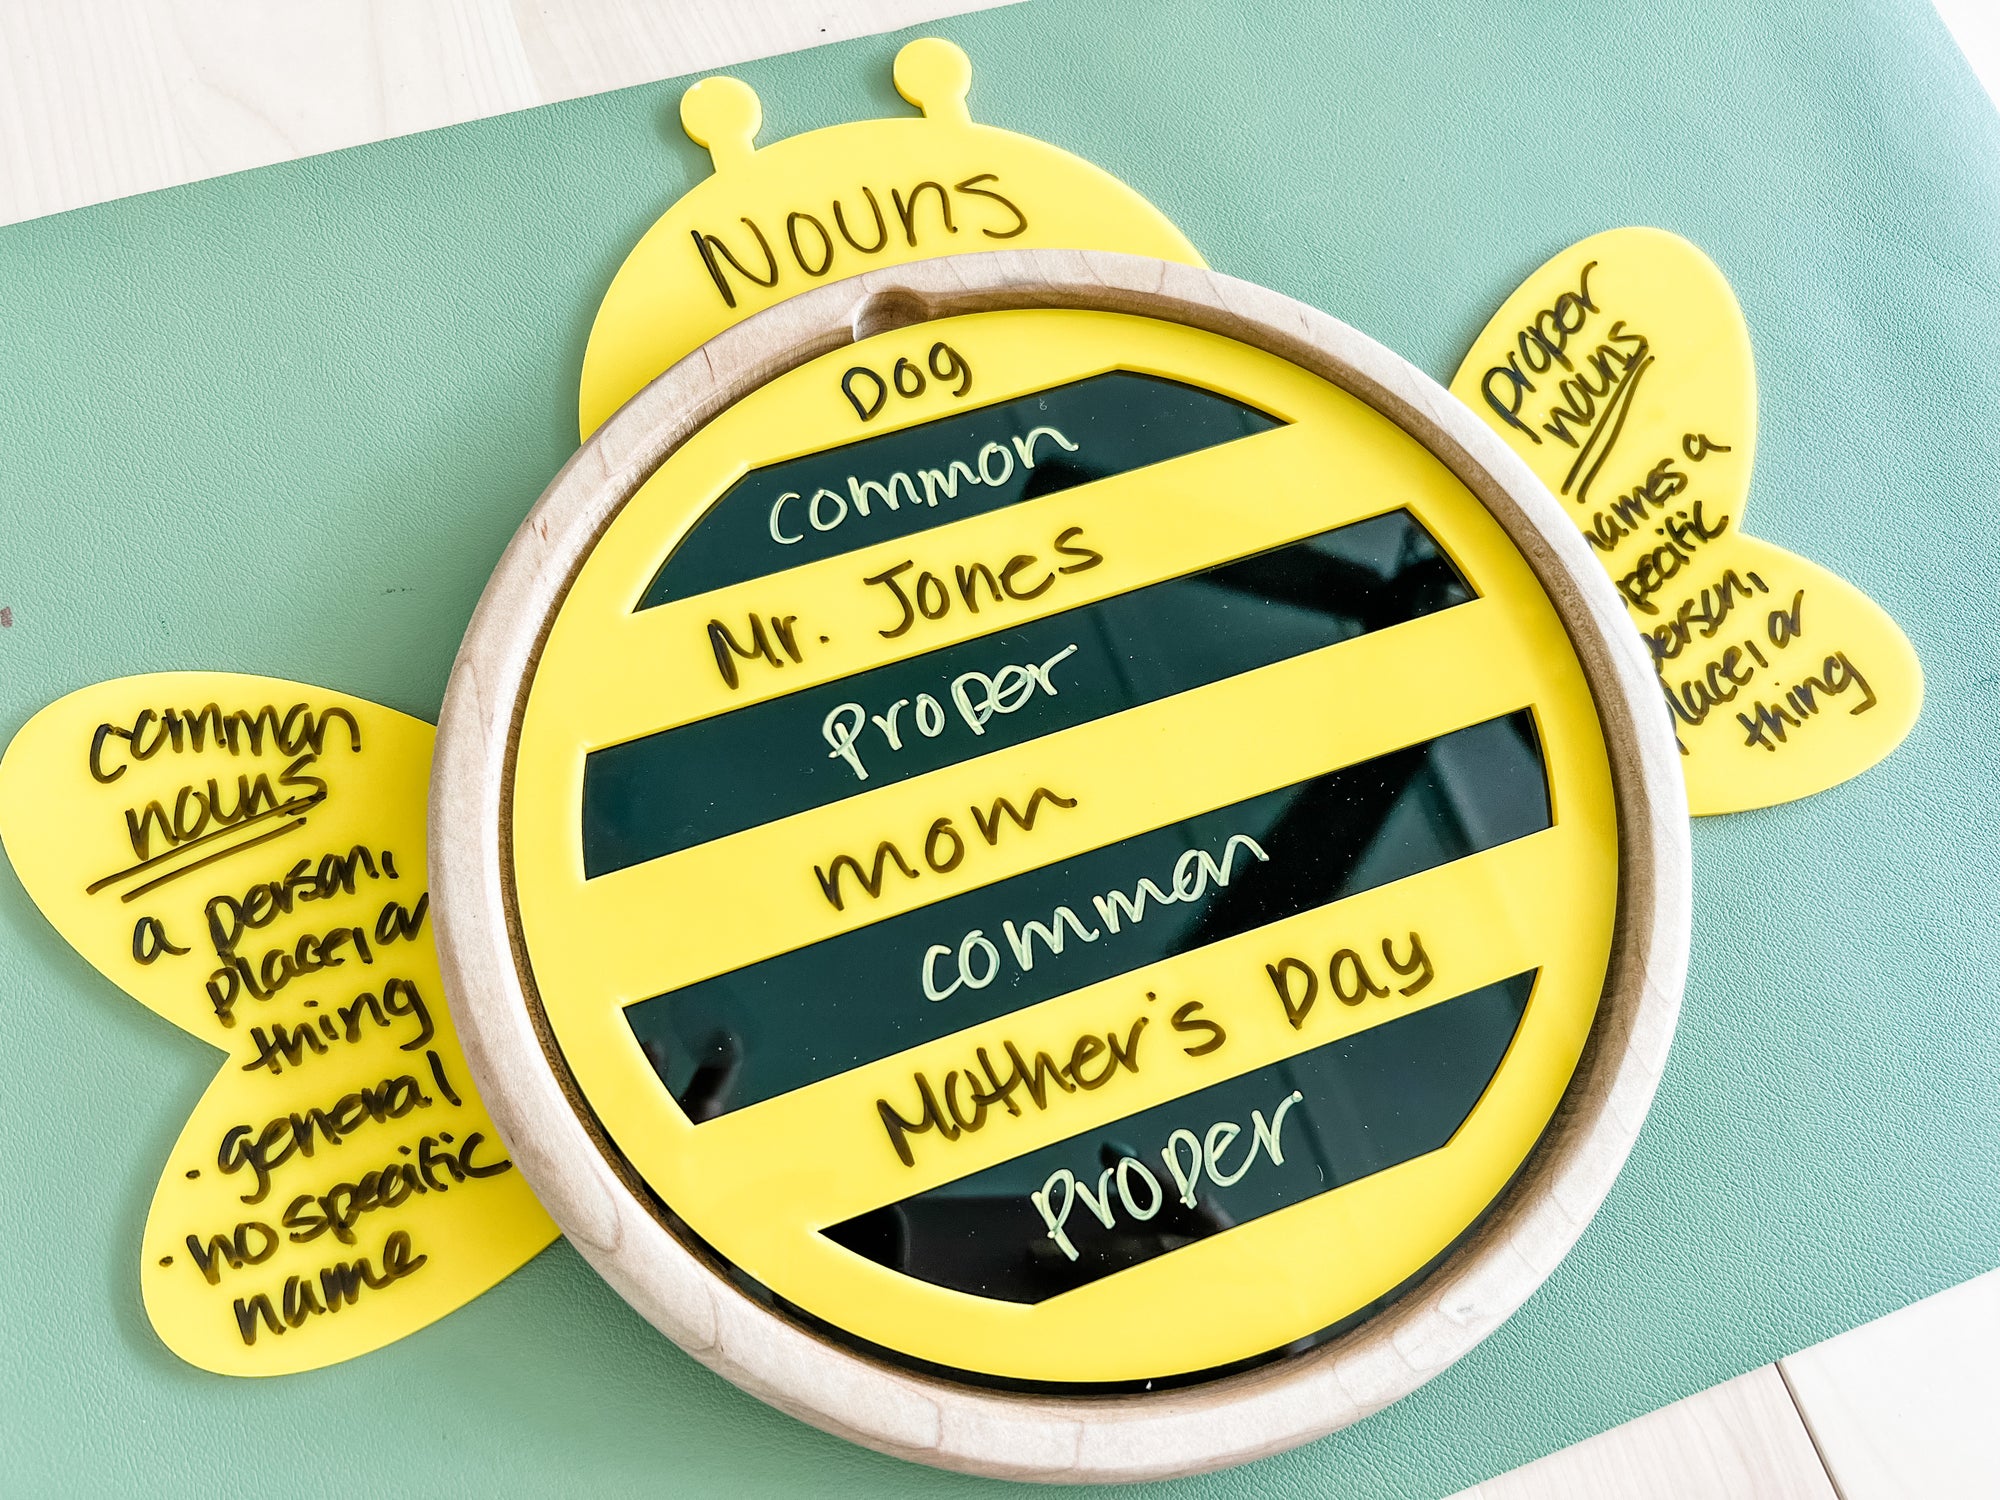 Nouns
Dog
common
Mr. Jones
Proper
mom
common
Mother's Day
Proper
common
nouns
a person,
place, or
thing
· general
· no specific
name
proper
nouns
names a
specific
person,
place, or
thing